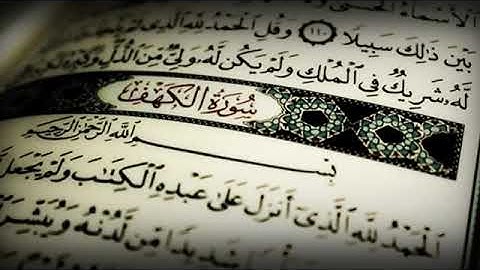 الأسماء الحسنى
بَيْنَ ذَٰلِكَ سَبِيلًا ١١٠ وَقُلِ الْحَمْدُ لِلَّهِ الَّذِي
لَّهُ شَرِيكٌ فِي الْمُلْكِ وَلَمْ يَكُن لَّهُ وَلِيٌّ مِّنَ الذُّلِّ وَكَبِّرْهُ
سُورَةُ الْكَهْفِ
بِسْمِ اللَّهِ الرَّحْمَٰنِ الرَّحِيمِ
الْحَمْدُ لِلَّهِ الَّذِي أَنزَلَ عَلَىٰ عَبْدِهِ الْكِتَابَ وَلَمْ يَجْعَل
شَدِيدًا مِّن لَّدُنْهُ وَيُبَشِّرَ